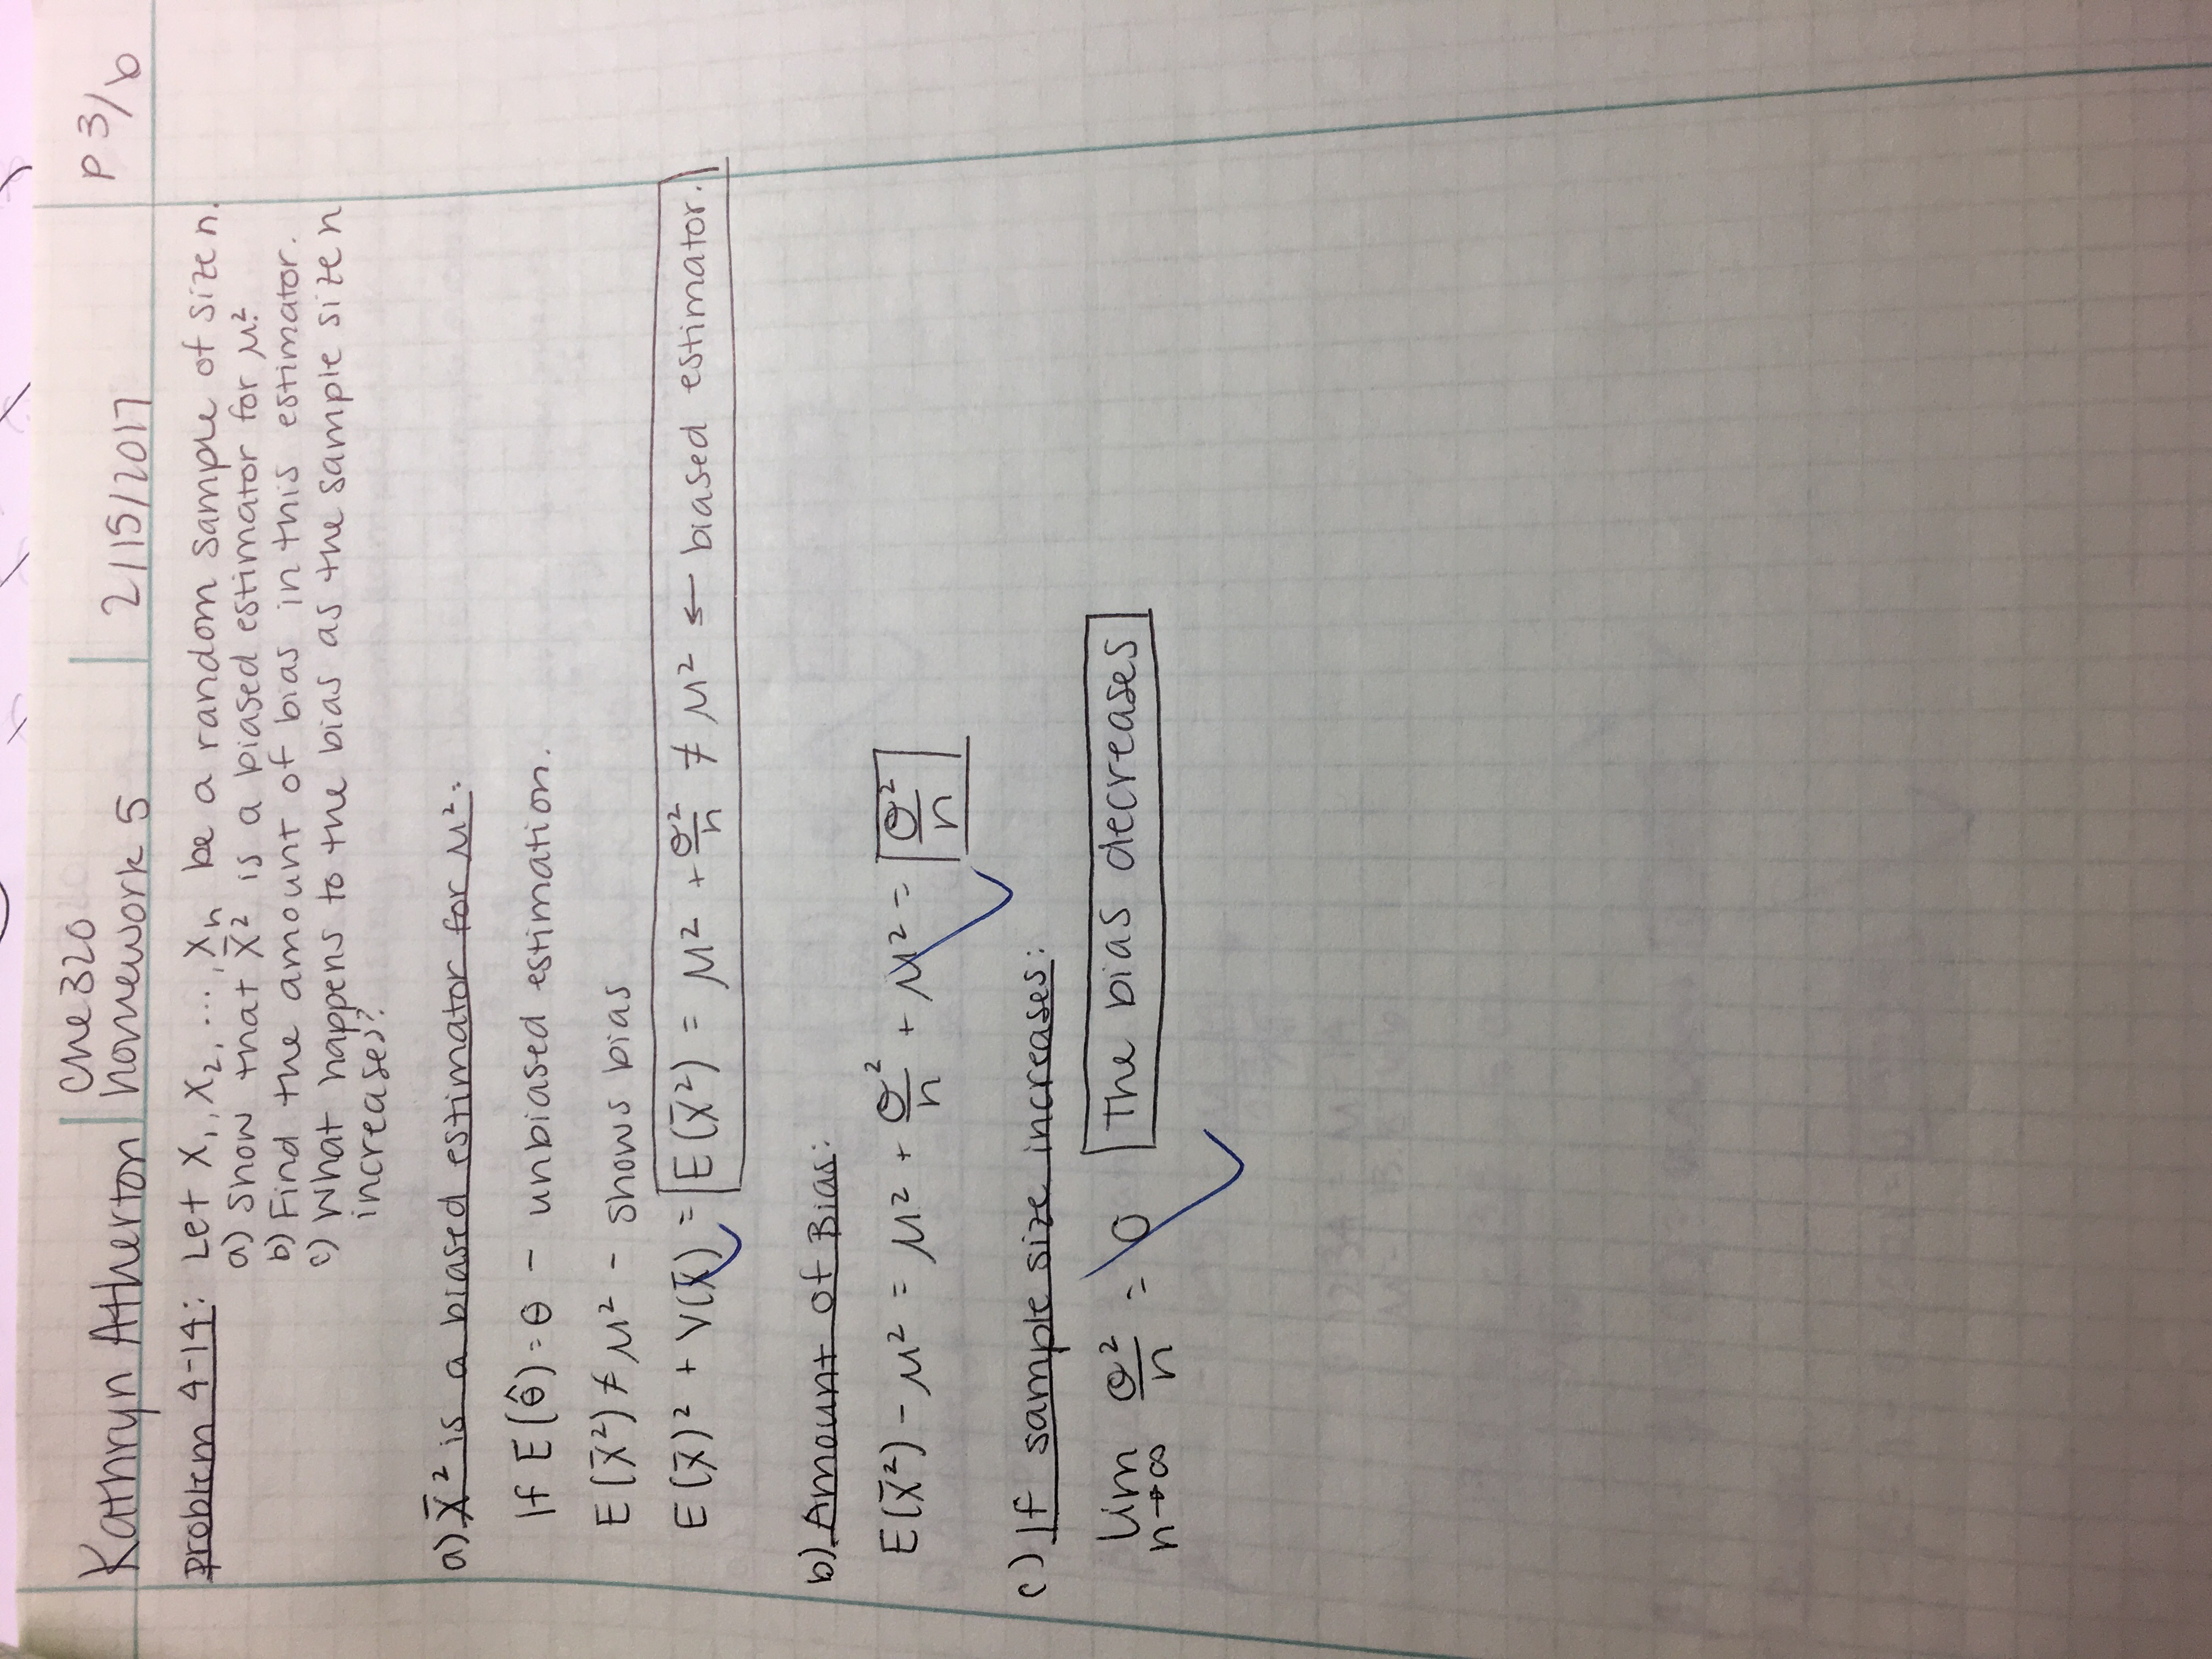 Kathryn Atherton
Che 320
homework 5
2/15/2017
P 3/6
problem 4-14: Let X₁, X₂, ..., Xₙ be a random sample of size n.
a) Show that X̄² is a biased estimator for μ².
b) Find the amount of bias in this estimator.
c) What happens to the bias as the sample size n
increases?
a) X̄² is a biased estimator for μ²:
If E(θ̂) = θ - unbiased estimation.
E(X̄²) ≠ μ² - shows bias
E(X̄)² + V(X̄) = E(X̄²) = μ² + σ²/n ≠ μ² ← biased estimator.
b) Amount of Bias:
E(X̄²) - μ² = μ² + σ²/n + μ² = σ²/n
c) If sample size increases:
lim n→∞ σ²/n = 0 The bias decreases